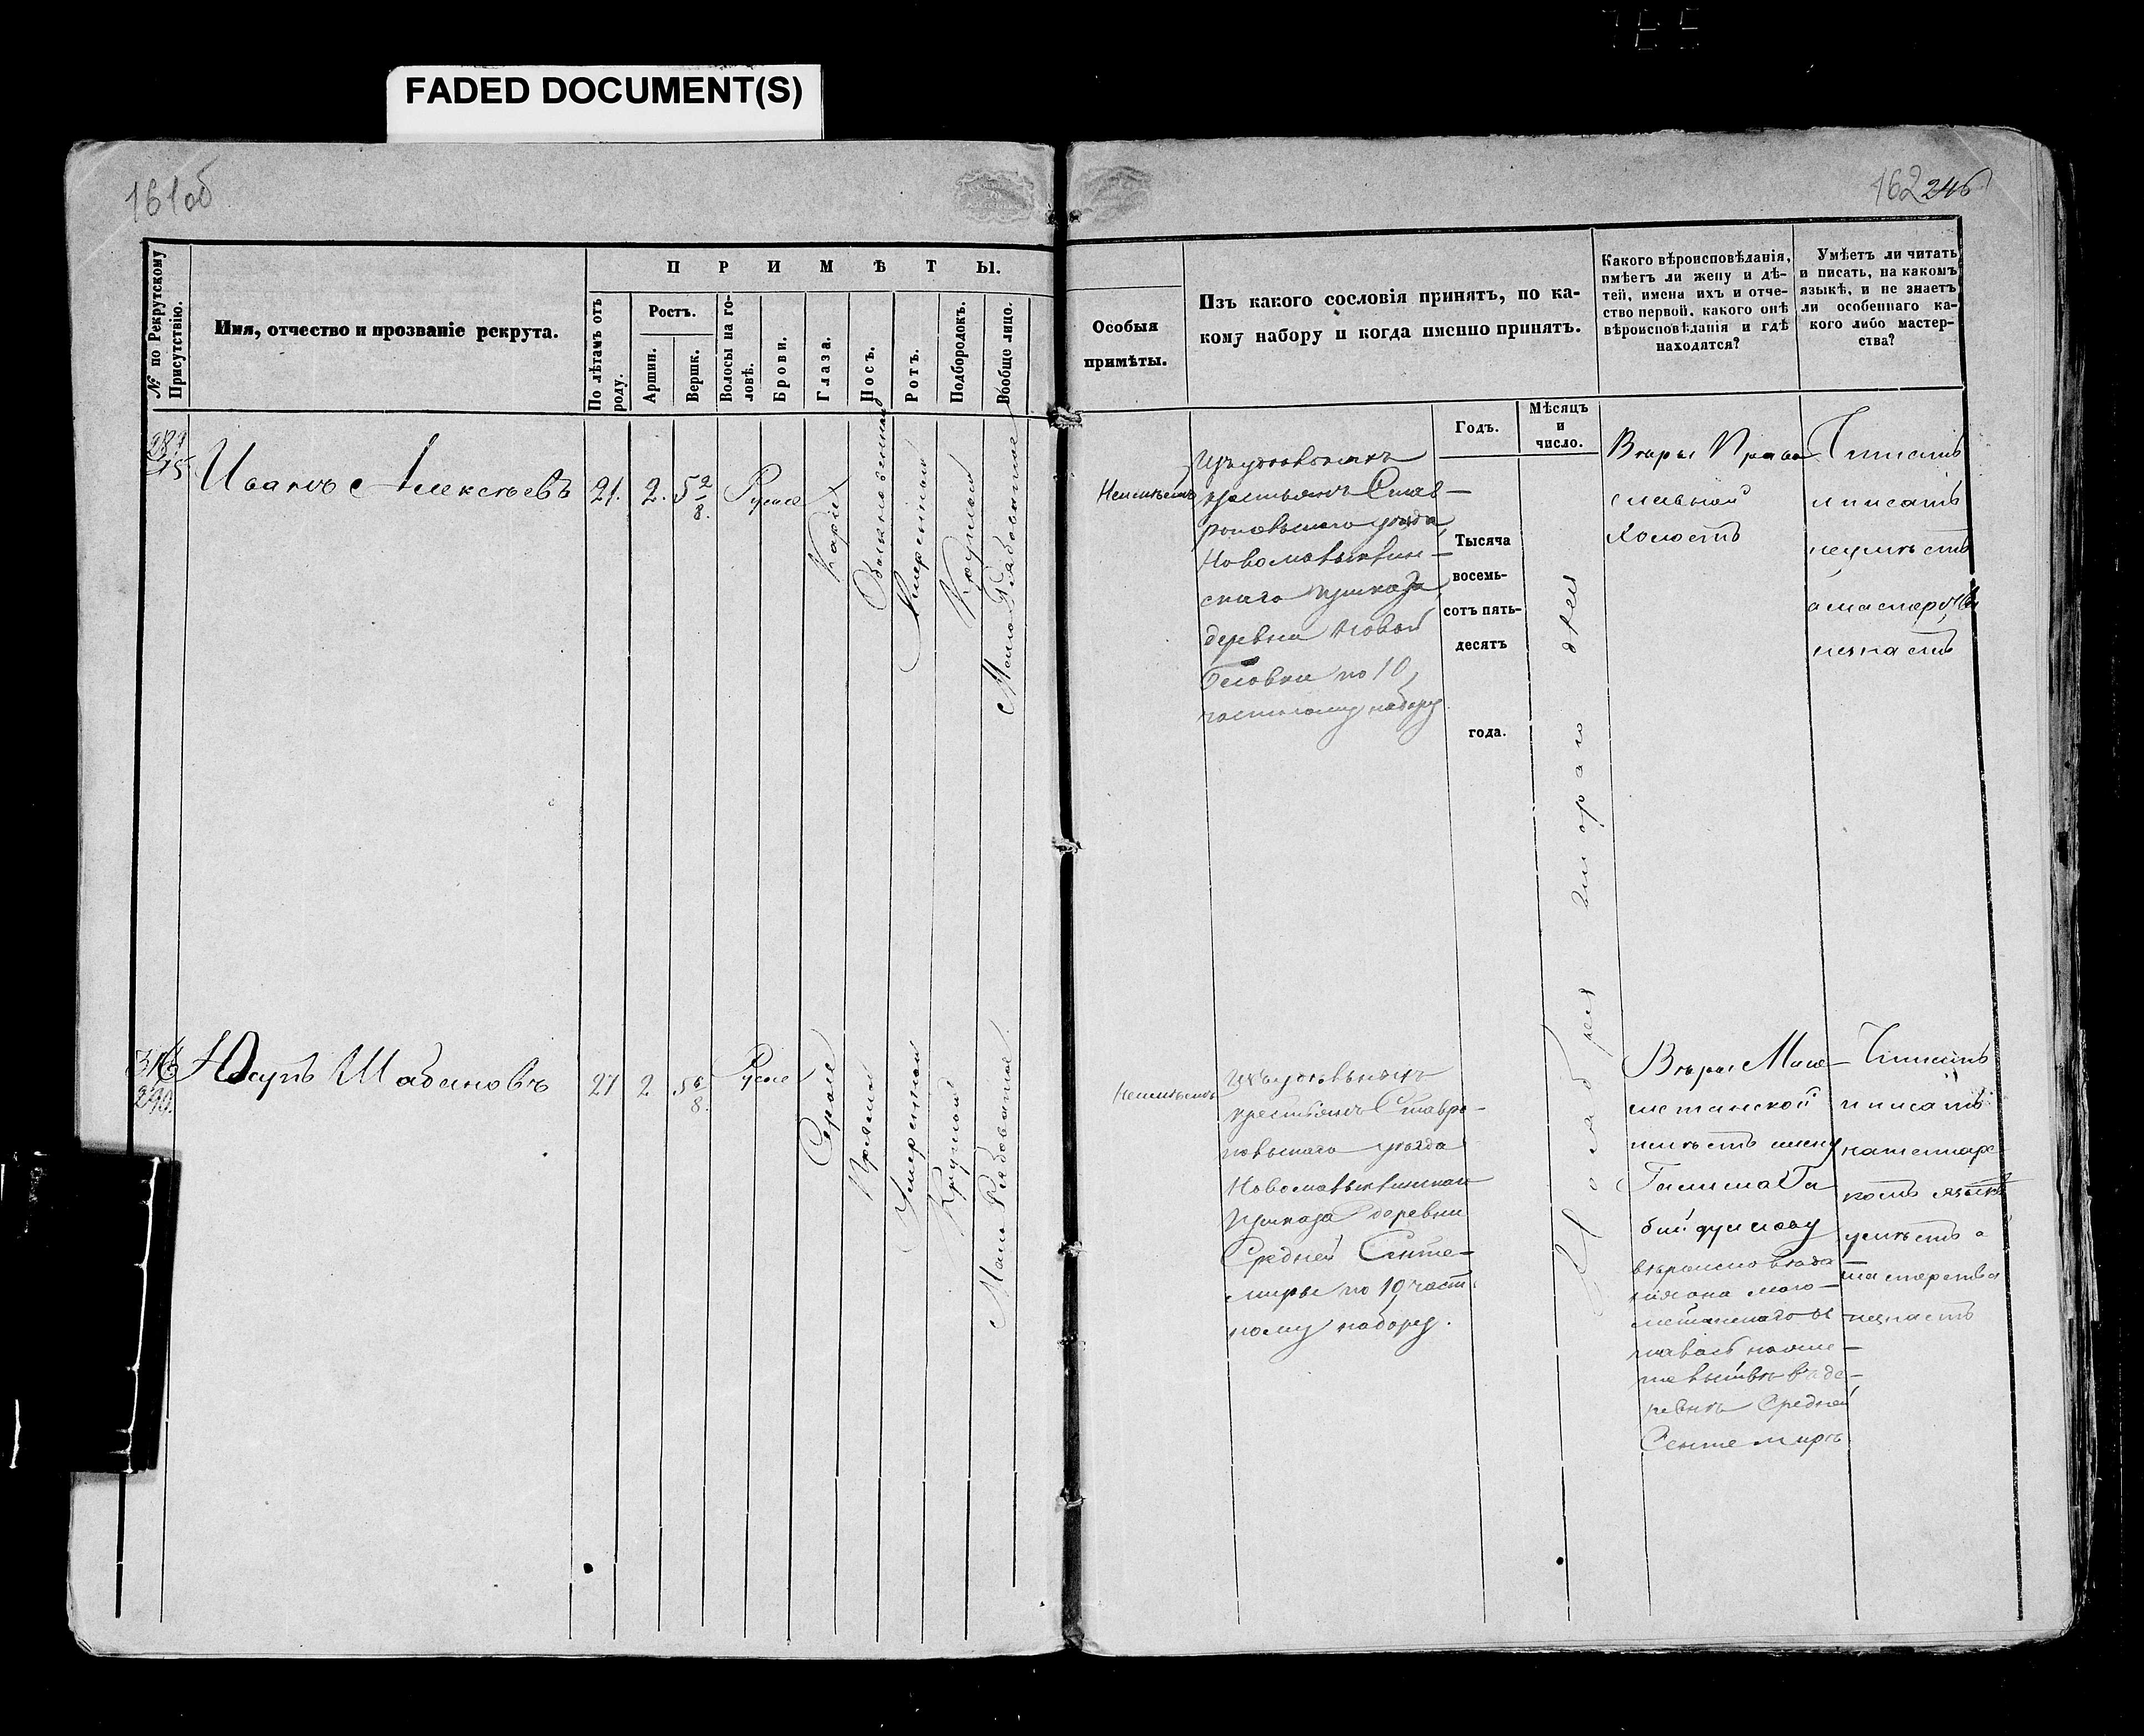 FADED DOCUMENT(S)
161об
162 246
№ по Рекрутскому Присутствію.
Имя, отчество и прозваніе рекрута.
ПРИМѢТЫ.
По лѣтамъ отъ роду.
Ростъ.
Аршин.
Вершк.
Волосы на головѣ.
Брови.
Глаза.
Носъ.
Ротъ.
Подбородокъ.
Вообще лицо.
Особыя
примѣты.
Изъ какого сословія принятъ, по ка-
кому набору и когда именно принятъ.
Годъ.
Мѣсяцъ
и
число.
Какого вѣроисповѣданія,
имѣетъ ли жену и дѣ-
тей, имена ихъ и отче-
ство первой, какого онѣ
вѣроисповѣданія и гдѣ
находятся?
Умѣетъ ли читать
и писать, на какомъ
языкѣ, и не знаетъ
ли особеннаго ка-
кого либо мастер-
ства?
Иванъ Алексѣевъ
21.
2.
5 2/8.
Русые
Карие
Умеренный
Круглой
Неимѣетъ
крестьянъ Став-
ропольскаго уѣзда
скаго приказа
деревни Новой
по 10
частному набору
Тысяча
восемь-
сотъ пять-
десятъ
года.
Октября втораго дня
Вѣры Право
славной
Холостъ
Читать
и писать
неумѣетъ
а мастерства
незнаетъ
316
290.
Юсупъ Шабановъ
27
2
5 6/8.
Русые
Серые
Прямой
Умеренной
Круглой
Мало Рябоватое
Неимѣетъ
Изъ удѣльныхъ
крестьянъ Ставро-
польскаго уѣзда
приказа деревни
Средней Сенте-
миры по 10 част
ному набору.
Вѣры Маго-
метанской
имѣетъ жену
вѣроисповѣда
ния она маго-
метанскаго
ревнѣ Средней
Сентемирѣ
Читать
и писать
на татарс
комъ языкѣ
умѣетъ а
мастерства
незнаетъ